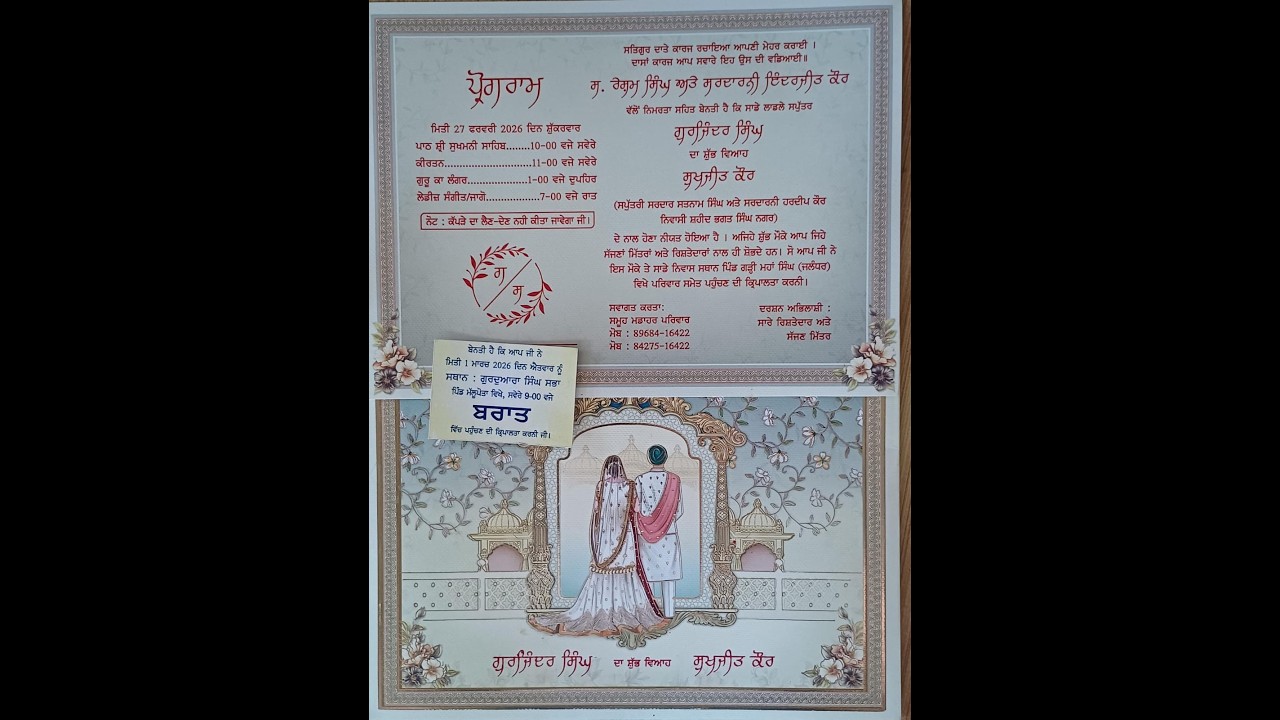 ਪ੍ਰੋਗਰਾਮ
ਮਿਤੀ 27 ਫਰਵਰੀ 2026 ਦਿਨ ਸ਼ੁੱਕਰਵਾਰ
ਪਾਠ ਸ਼੍ਰੀ ਸੁਖਮਨੀ ਸਾਹਿਬ........10-00 ਵਜੇ ਸਵੇਰੇ
ਕੀਰਤਨ.............................11-00 ਵਜੇ ਸਵੇਰੇ
ਗੁਰੂ ਕਾ ਲੰਗਰ....................1-00 ਵਜੇ ਦੁਪਹਿਰ
ਲੇਡੀਜ਼ ਸੰਗੀਤ/ਜਾਗੋ..................7-00 ਵਜੇ ਰਾਤ
ਨੋਟ : ਕੱਪੜੇ ਦਾ ਲੈਣ-ਦੇਣ ਨਹੀ ਕੀਤਾ ਜਾਵੇਗਾ ਜੀ।
ਗ/ਸ
ਸਤਿਗੁਰ ਦਾਤੇ ਕਾਰਜ ਰਚਾਇਆ ਆਪਣੀ ਮੇਹਰ ਕਰਾਈ ।
ਦਾਸਾਂ ਕਾਰਜ ਆਪ ਸਵਾਰੇ ਇਹ ਉਸ ਦੀ ਵਡਿਆਈ॥
ਸ. ਰੇਸ਼ਮ ਸਿੰਘ ਅਤੇ ਸਰਦਾਰਨੀ ਇੰਦਰਜੀਤ ਕੌਰ
ਵੱਲੋਂ ਨਿਮਰਤਾ ਸਹਿਤ ਬੇਨਤੀ ਹੈ ਕਿ ਸਾਡੇ ਲਾਡਲੇ ਸਪੁੱਤਰ
ਗੁਰਜਿੰਦਰ ਸਿੰਘ
ਦਾ ਸ਼ੁੱਭ ਵਿਆਹ
ਸੁਖਜੀਤ ਕੌਰ
(ਸਪੁੱਤਰੀ ਸਰਦਾਰ ਸਤਨਾਮ ਸਿੰਘ ਅਤੇ ਸਰਦਾਰਨੀ ਹਰਦੀਪ ਕੌਰ
ਨਿਵਾਸੀ ਸ਼ਹੀਦ ਭਗਤ ਸਿੰਘ ਨਗਰ)
ਦੇ ਨਾਲ ਹੋਣਾ ਨੀਯਤ ਹੋਇਆ ਹੈ । ਅਜਿਹੇ ਸ਼ੁੱਭ ਮੌਕੇ ਆਪ ਜਿਹੇ
ਸੱਜਣਾਂ ਮਿੱਤਰਾਂ ਅਤੇ ਰਿਸ਼ਤੇਦਾਰਾਂ ਨਾਲ ਹੀ ਸ਼ੋਭਦੇ ਹਨ। ਸੋ ਆਪ ਜੀ ਨੇ
ਇਸ ਮੌਕੇ ਤੇ ਸਾਡੇ ਨਿਵਾਸ ਸਥਾਨ ਪਿੰਡ ਗੜ੍ਹੀ ਮਹਾਂ ਸਿੰਘ (ਜਲੰਧਰ)
ਵਿਖੇ ਪਰਿਵਾਰ ਸਮੇਤ ਪਹੁੰਚਣ ਦੀ ਕ੍ਰਿਪਾਲਤਾ ਕਰਨੀ।
ਸਵਾਗਤ ਕਰਤਾ:
ਸਮੂਹ ਮਡਾਹਰ ਪਰਿਵਾਰ
ਮੋਬ : 89684-16422
ਮੋਬ : 84275-16422
ਦਰਸ਼ਨ ਅਭਿਲਾਸ਼ੀ :
ਸਾਰੇ ਰਿਸ਼ਤੇਦਾਰ ਅਤੇ
ਸੱਜਣ ਮਿੱਤਰ
ਬੇਨਤੀ ਹੈ ਕਿ ਆਪ ਜੀ ਨੇ
ਮਿਤੀ 1 ਮਾਰਚ 2026 ਦਿਨ ਐਤਵਾਰ ਨੂੰ
ਸਥਾਨ : ਗੁਰਦੁਆਰਾ ਸਿੰਘ ਸਭਾ
ਪਿੰਡ ਮੱਲੂਪੋਤਾ ਵਿਖੇ, ਸਵੇਰੇ 9-00 ਵਜੇ
ਬਰਾਤ
ਵਿੱਚ ਪਹੁੰਚਣ ਦੀ ਕ੍ਰਿਪਾਲਤਾ ਕਰਨੀ ਜੀ।
ਗੁਰਜਿੰਦਰ ਸਿੰਘ ਦਾ ਸ਼ੁੱਭ ਵਿਆਹ ਸੁਖਜੀਤ ਕੌਰ